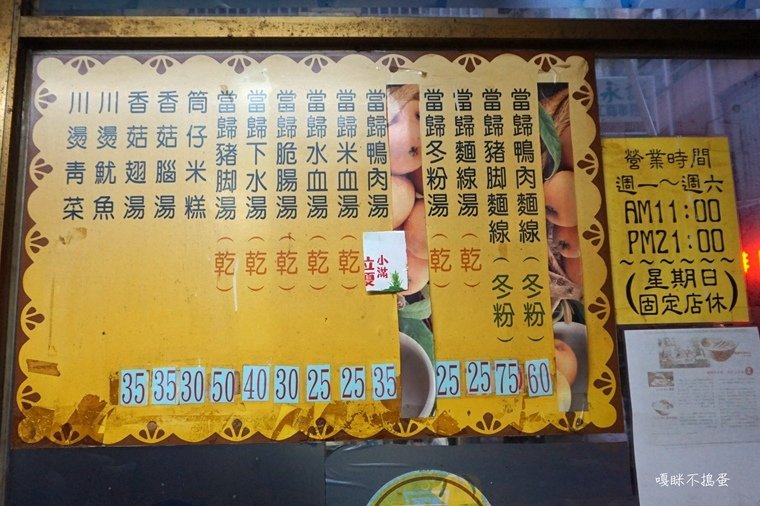 當歸鴨肉麵線(冬粉) 60
當歸豬脚麵線(冬粉) 75
當歸麵線湯(乾) 25
當歸冬粉湯(乾) 25
當歸鴨肉湯 35
當歸米血湯(乾) 25
當歸水血湯(乾) 25
當歸脆腸湯(乾) 30
當歸下水湯(乾) 40
當歸豬脚湯(乾) 50
筒仔米糕 30
香菇腦湯 35
香菇翅湯 35
川燙魷魚
川燙青菜
小滿
立夏
營業時間
週一～週六
AM11:00
PM21:00
(星期日
固定店休)
嘎眯不搗蛋